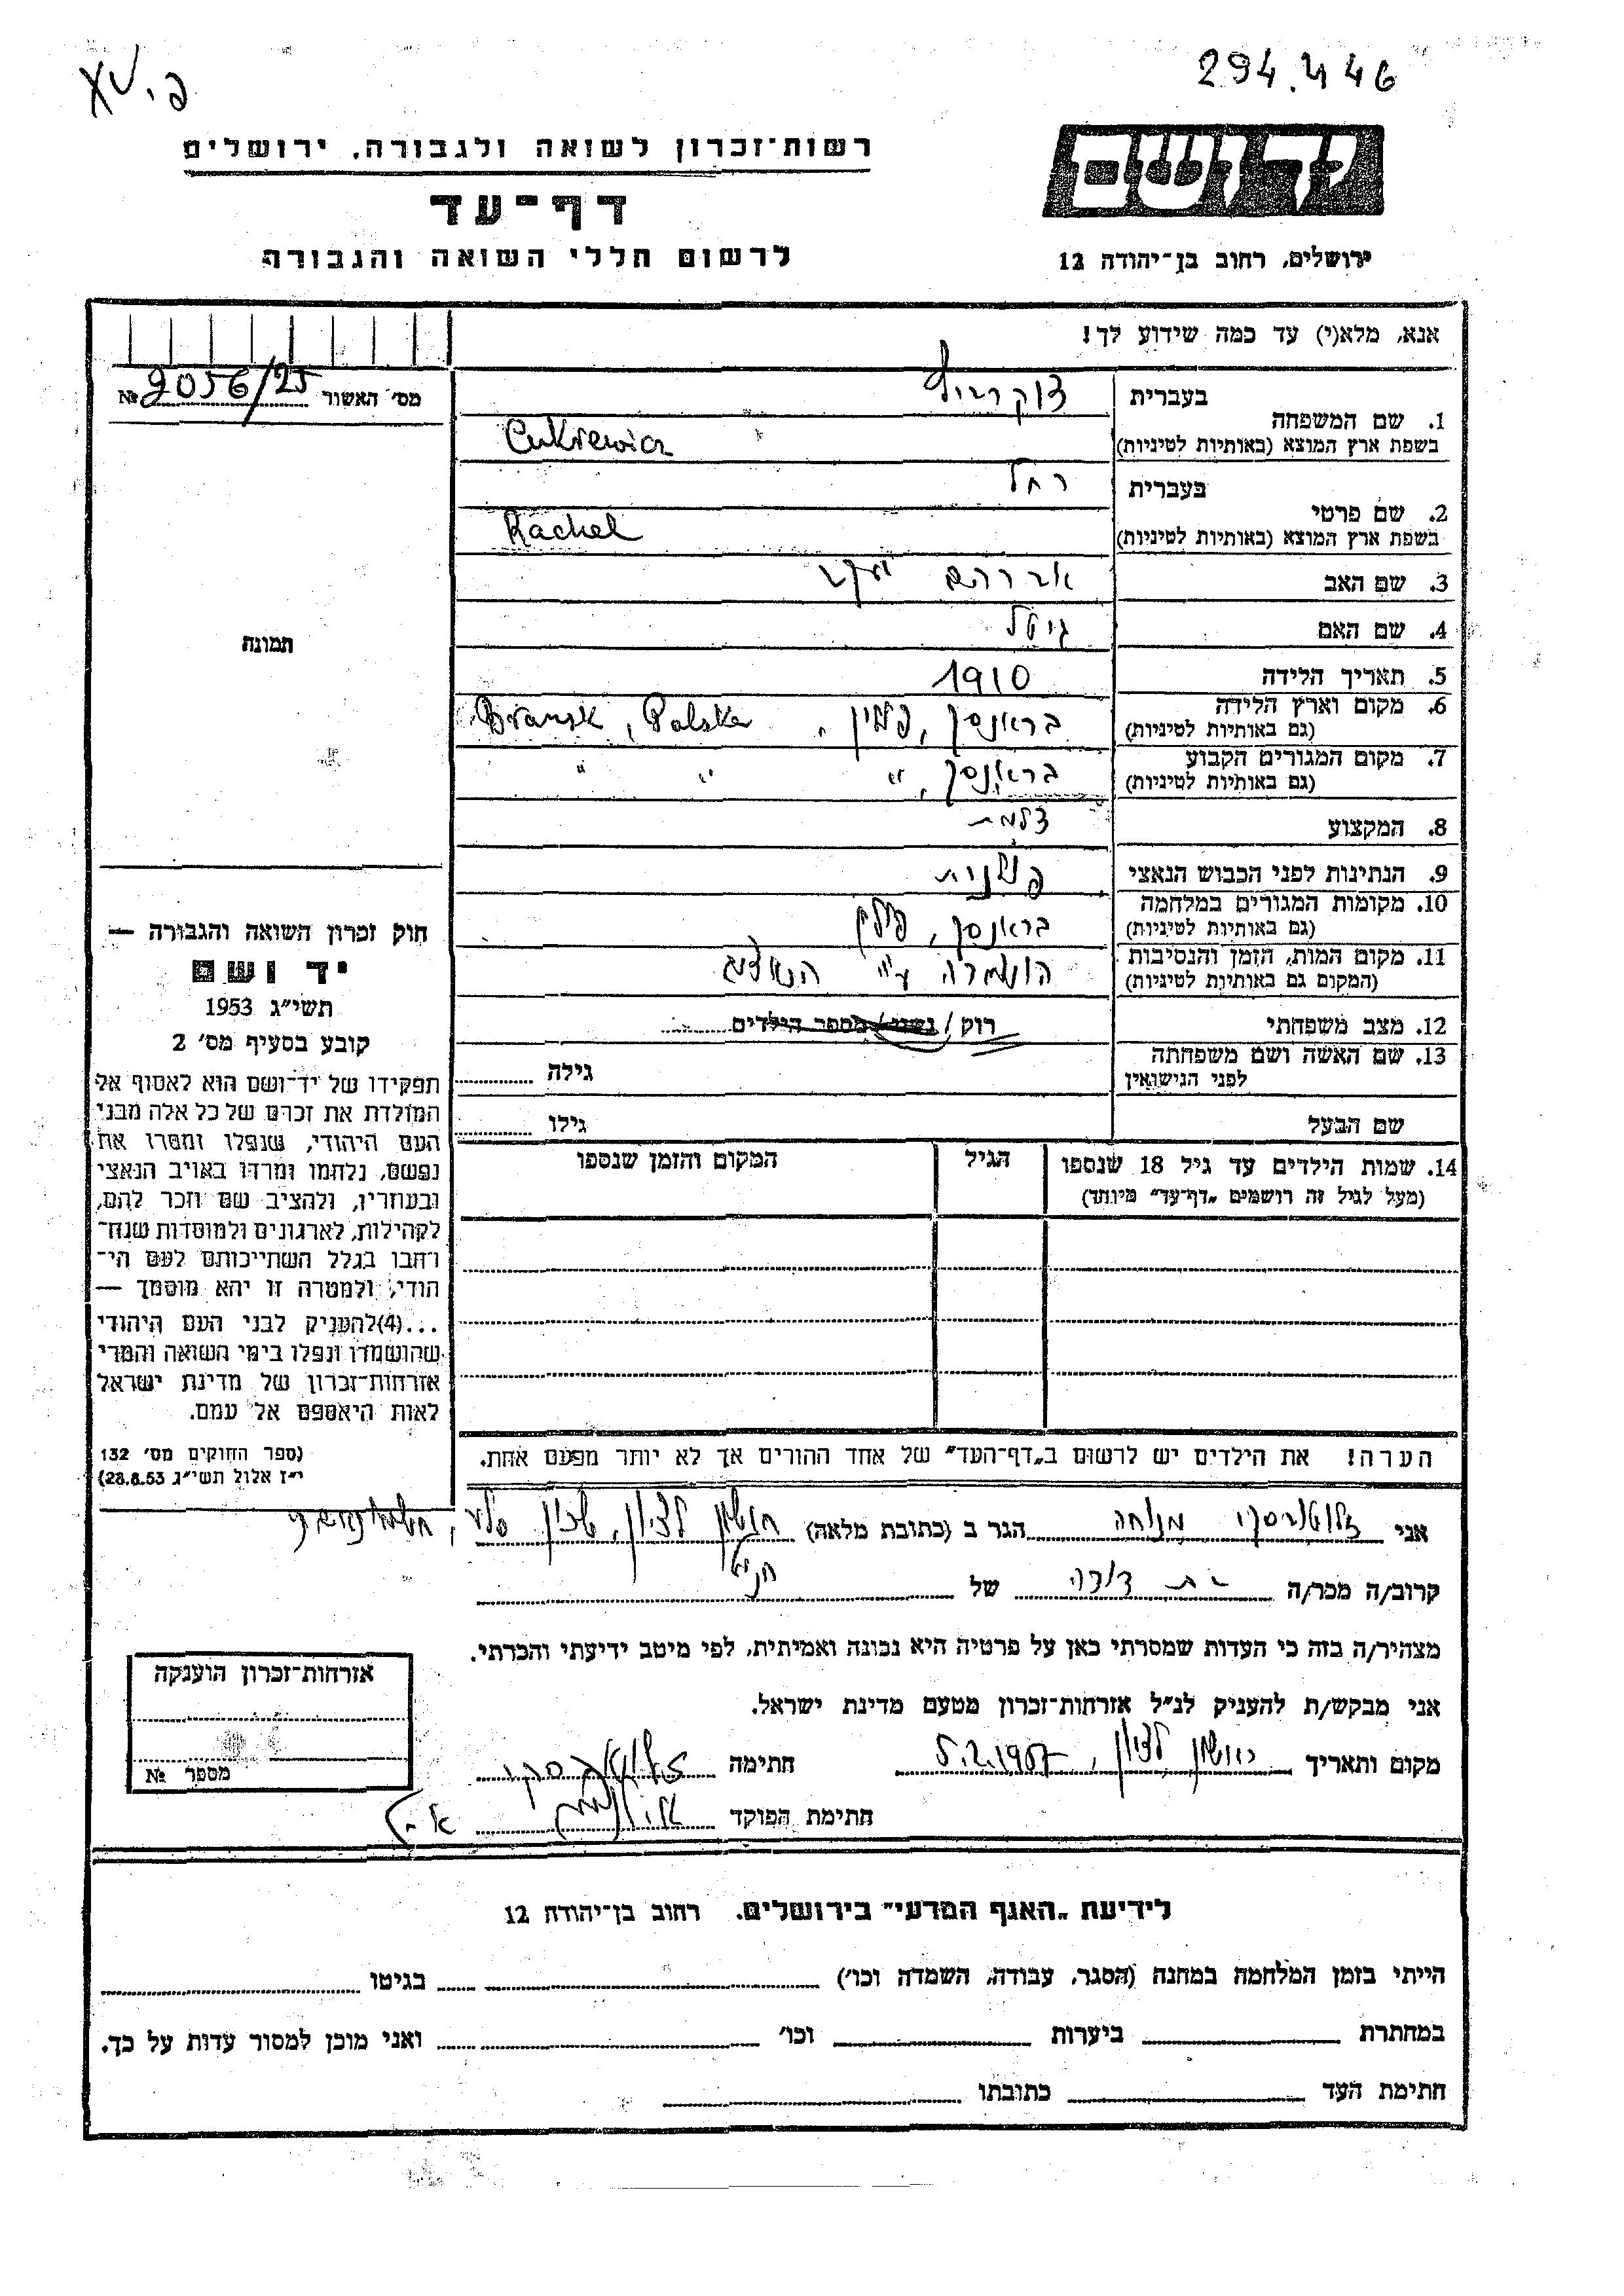 294.446
רשות־זכרון לשואה ולגבורה, ירושלים
דף־עד
לרשום חללי השואה והגבורה
יד ושם
ירושלים, רחוב בן־יהודה 12
אנא, מלא(י) עד כמה שידוע לך!
מס׳ האשור № 9056/25
תמונה
1. שם המשפחה
בעברית
בשפת ארץ המוצא (באותיות לטיניות) Cukrewicz
2. שם פרטי
בעברית רחל
בשפת ארץ המוצא (באותיות לטיניות) Rachel
3. שם האב אברהם יעקב
4. שם האם גיטל
5. תאריך הלידה 1910
6. מקום וארץ הלידה בראנסק, פולין, Bransk, Polska
(גם באותיות לטיניות)
7. מקום המגורים הקבוע בראנסק, " " "
(גם באותיות לטיניות)
8. המקצוע צלמת
9. הנתינות לפני הכבוש הנאצי פולנית
10. מקומות המגורים במלחמה בראנסק, פולין
(גם באותיות לטיניות)
11. מקום המות, הזמן והנסיבות הושמדה ע"י הנאצים
(המקום גם באותיות לטיניות)
12. מצב משפחתי רוק / נשוי / מספר הילדים
13. שם האשה ושם משפחתה גילה
לפני הנישואין
שם הבעל גילו
14. שמות הילדים עד גיל 18 שנספו הגיל המקום והזמן שנספו
(מעל לגיל זה רושמים „דף־עד" מיוחד)
הערה! את הילדים יש לרשום ב„דף־העד" של אחד ההורים אך לא יותר מפעם אחת.
חוק זכרון השואה והגבורה —
יד ושם
תשי״ג 1953
קובע בסעיף מס׳ 2
תפקידו של יד־ושם הוא לאסוף אל
המולדת את זכרם של כל אלה מבני
העם היהודי, שנפלו ומסרו את
נפשם, נלחמו ומרדו באויב הנאצי
ובעוזריו, ולהציב שם וזכר להם,
לקהילות, לארגונים ולמוסדות שנח־
רחבו בגלל השתייכותם לעם הי־
הודי, ולמטרה זו יהא מוסמך —
...(4)להעניק לבני העם היהודי
שהושמדו ונפלו בימי השואה והמרי
אזרחות־זכרון של מדינת ישראל
לאות היאספם אל עמם.
(ספר החוקים מס׳ 132
י״ז אלול תשי״ג 28.8.53)
אני זלוטניסקי מנוחה הגר ב (כתובת מלאה) ראשון לציון, שכון סלע,
קרוב/ה מכר/ה בת דודה של הנ"ל
מצהיר/ה בזה כי העדות שמסרתי כאן על פרטיה היא נכונה ואמיתית, לפי מיטב ידיעתי והכרתי.
אני מבקש/ת להעניק לנ״ל אזרחות־זכרון מטעם מדינת ישראל.
מקום ותאריך ראשון לציון, 5.2.1957 חתימה
חתימת הפוקד
אזרחות־זכרון הוענקה
מספר №
לידיעת „האגף המדעי" בירושלים, רחוב בן־יהודה 12
הייתי בזמן המלחמה במחנה (הסגר, עבודה, השמדה וכו׳) בגיטו
במחתרת ביערות וכו׳ ואני מוכן למסור עדות על כך.
חתימת העד כתובתו